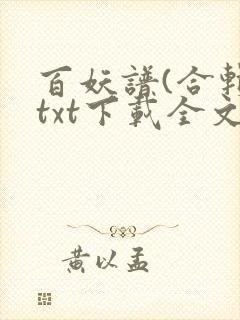 百妖譜(合輯
txt下載全文
黄以孟